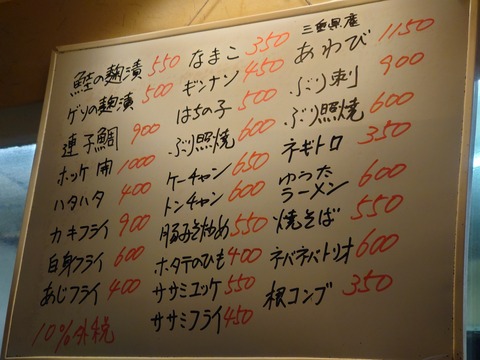 鮭の麹漬 550
ゲソの麹漬 500
連子鯛 900
ホッケ開 1000
ハタハタ 400
カキフライ 900
白身フライ 600
あじフライ 400
10%外税
なまこ 350
ギンナン 450
はちの子 500
ぶり照焼 600
ケーチャン 650
トンチャン 600
豚みそ炒め 550
ホタテのひも 400
ササミユッケ 550
ササミフライ 450
三重県産
あわび 1150
ぶり刺 900
ぶり照焼 600
ネギトロ 350
ゆうた
ラーメン 600
焼そば 550
ネバネバトリオ 600
根コンブ 350